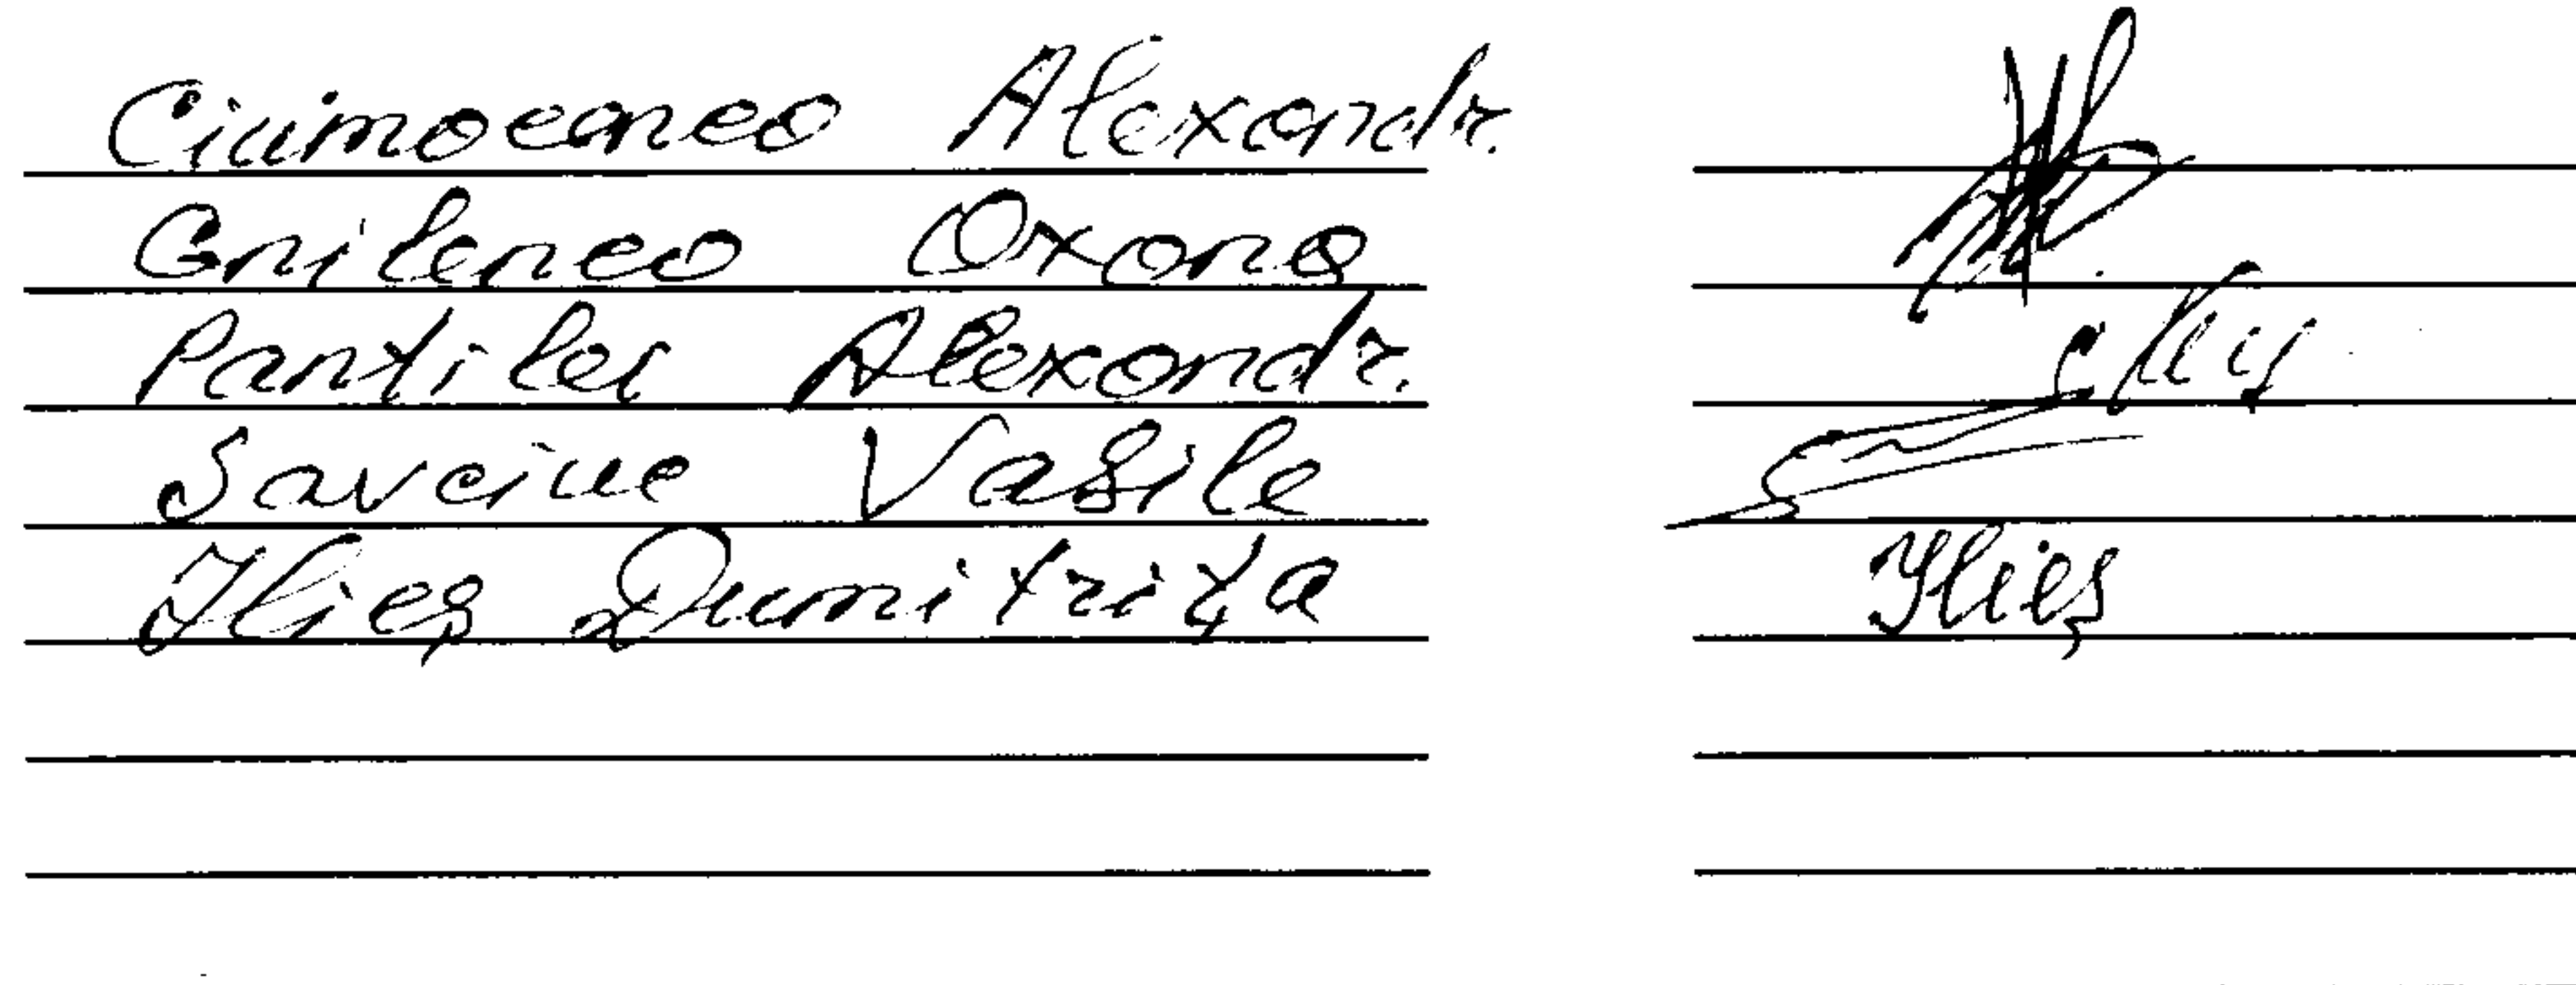 Ciumocenco Alexandr.
Gnilenco Oxana
Pantilei Alexandr.
Savciuc Vasile
Ilieș Dumitrița
Ilieș